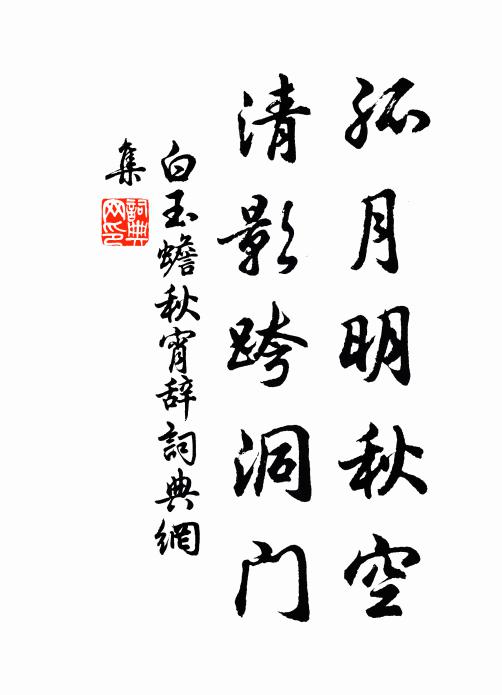 孤月明秋空
清影跨洞门
白玉蟾秋宵辞詞典網
集
詞典
网印